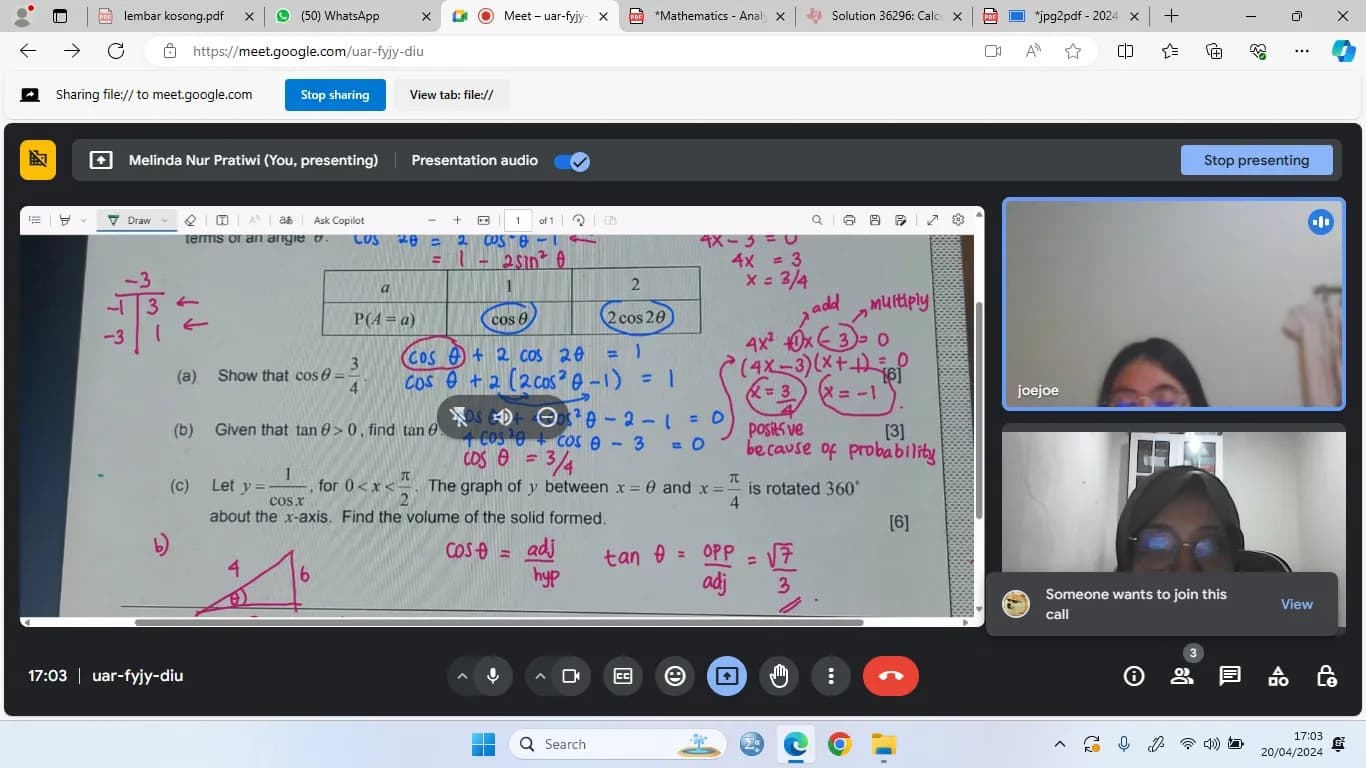 lembar kosong.pdf
(50) WhatsApp
Meet – uar-fyjy-
*Mathematics - Anal
Solution 36296: Calcu
*jpg2pdf - 2024
https://meet.google.com/uar-fyjy-diu
Sharing file:// to meet.google.com
Stop sharing
View tab: file://
Melinda Nur Pratiwi (You, presenting)
Presentation audio
Stop presenting
Draw
Ask Copilot
1 of 1
terms of an angle θ.
cos 2θ = 2 cos²θ - 1
= 1 - 2sin² θ
4x - 3 = 0
4x = 3
x = 3/4
-3
-1 3
-3 1
a 1 2
P(A = a) cos θ 2 cos 2θ
add multiply
4x² + 1x - 3 = 0
(4x-3)(x+1) = 0
x = 3/4 x = -1
positive
because of probability
cos θ + 2 cos 2θ = 1
(a) Show that cos θ = 3/4.
[6]
cos θ + 2 (2cos² θ - 1) = 1
cos²θ - 2 - 1 = 0
(b) Given that tan θ > 0, find tan θ
[3]
4 cos²θ + cos θ - 3 = 0
cos θ = 3/4
(c) Let y = 1/cos x, for 0 < x < π/2. The graph of y between x = θ and x = π/4 is rotated 360°
about the x-axis. Find the volume of the solid formed.
[6]
b)
4
6
θ
cos θ = adj/hyp
tan θ = opp/adj = √7/3
joejoe
Someone wants to join this
call
View
17:03
uar-fyjy-diu
3
Search
17:03
20/04/2024